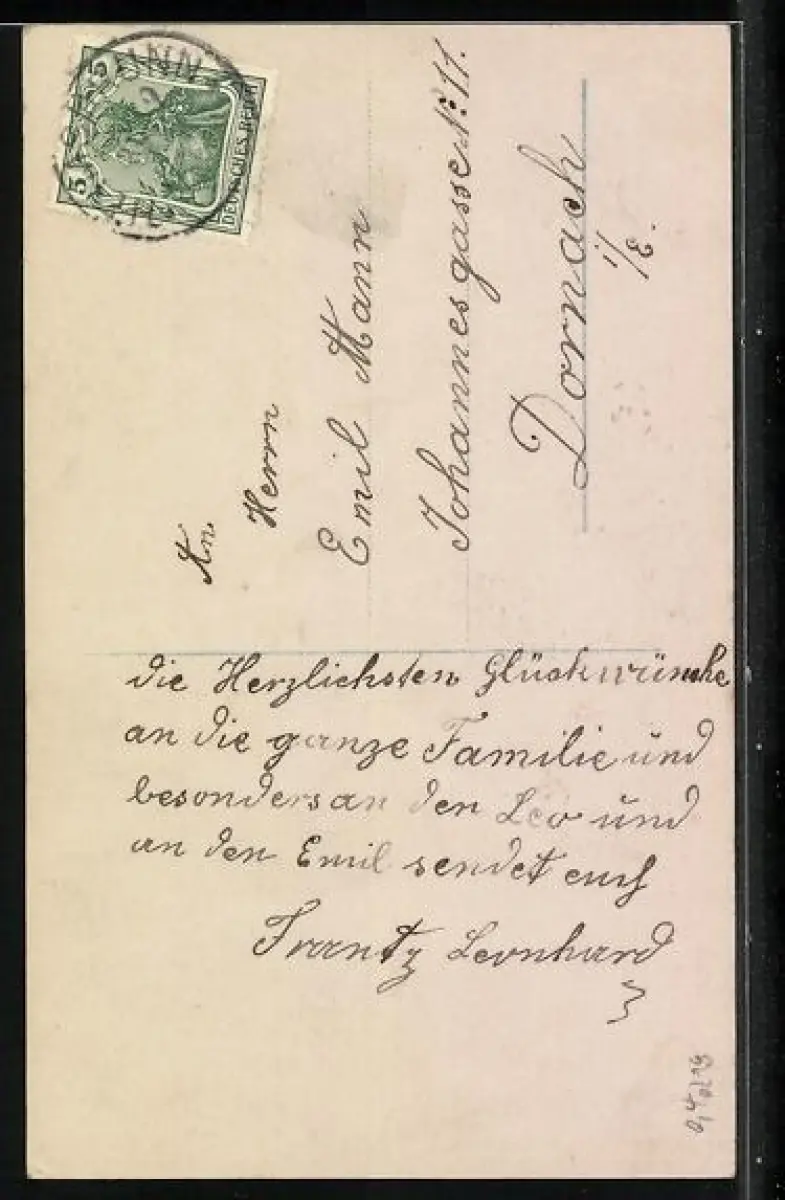 5
5
DEUTSCHES REICH
An
Herrn
Emil Mann
Johannesgasse N: 11.
Dornach
i/E.
die Herzlichsten Glückwünsche
an die ganze Familie und
besonders an den Leo und
an den Emil sendet euch
Frantz Leonhard